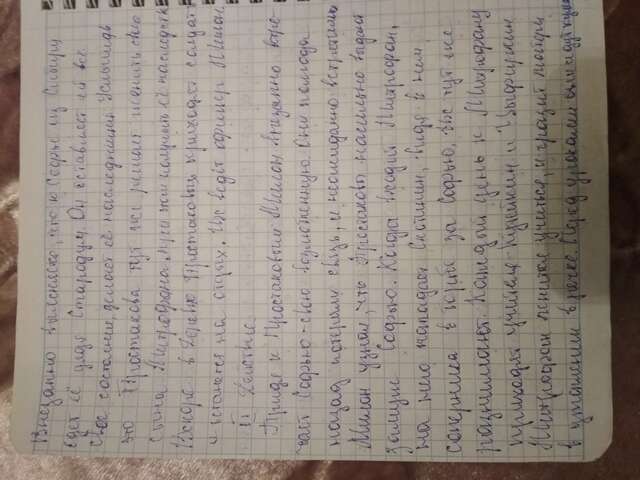 Внезапно выяснилось, что к Софье из Сибири
едет её дядя Стародум. Он оставляет ей все
свое состояние, делает её наследницей. Услышав
это Простакова тут же решает женить своего
сына Митрофана. Хочет получить её наследство.
Вскоре в деревню Простаковых приходят солдаты
и остаются на отдых. Их ведёт офицер Милон.
II Действие
Придя к Простаковым Милон внезапно встре-
чает Софью - свою возлюбленную. Они полгода
назад потеряли связь, и неожиданно встретились
Милон узнал, что Простаковы насильно выдают
замуж Софью. Когда входит Митрофан,
на него нападает Скотинин, видя в нем
соперника в борьбе за Софью. Их тут же
разнимают. Каждый день к Митрофану
приходят учителя - Кутейкин и Цыфиркин
Митрофан ленится учиться, и грозит
в ученье. Перед уроками